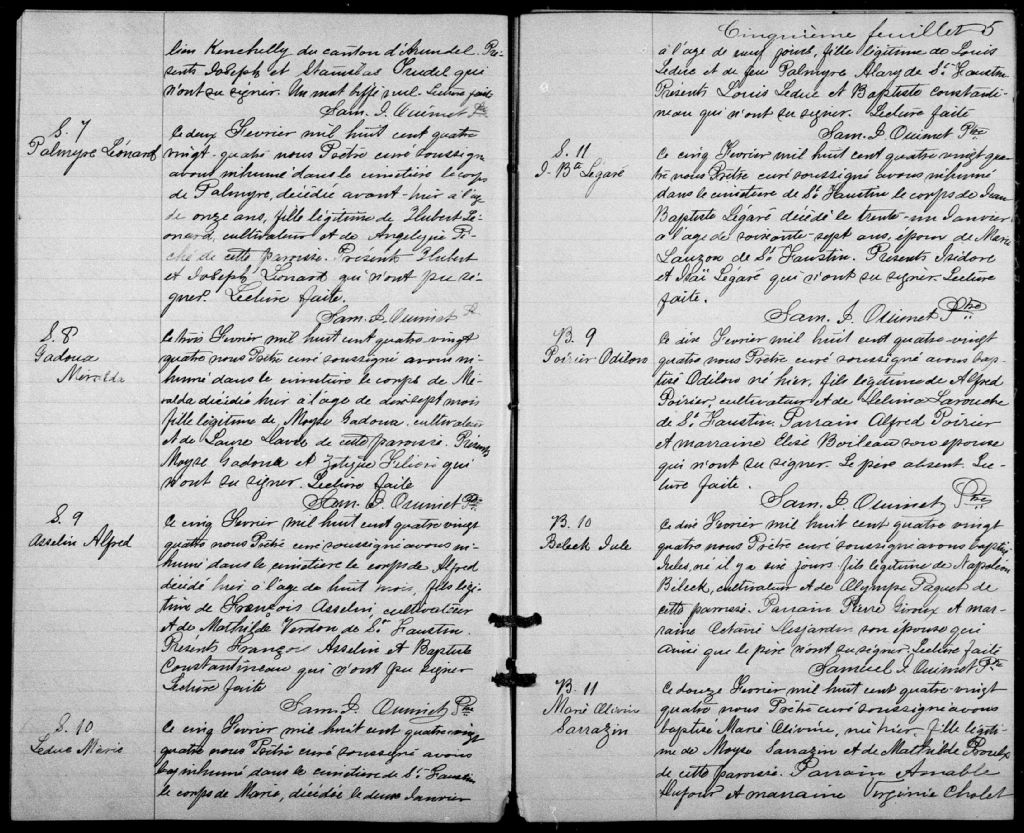 lien Kenehelly du canton d'Arundel. Pré-
sents Joseph et Stanislas Trudel qui
n'ont su signer. Un mot biffé nul. Lecture faite
Sam. J. Ouimet Ptre
S. 7
Palmyre Léonard
Le deux Fevrier mil huit cent quatre
vingt-quatre nous Prêtre curé soussigné
avons inhumé dans le cimetière le corps
de Palmyre, décédée avant-hier à l'age
de onze ans, fille légitime de Hubert Lé-
onard, cultivateur et de Angelique Pi-
ché de cette paroisse. Presents Hubert
et Joseph Léonard qui n'ont pu si-
gner. Lecture faite.
Sam. J. Ouimet Pt
S. 8
Gadoua
Meralda
Le trois Fevrier mil huit cent quatre vingt
quatre nous Prêtre curé soussigné avons in-
humé dans le cimetière le corps de Mé-
ralda décédée hier à l'age de dix sept mois
fille légitime de Moyse Gadoua, cultivateur
et de Laure Lavoie de cette paroisse. Présents
Moyse Gadoua et Zotique qui
n'ont su signer. Lecture faite
Sam. J. Ouimet Ptre
S. 9
Asselin Alfred
Le cinq Fevrier mil huit cent quatre vingt
quatre nous Prêtre curé soussigné avons in-
humé dans le cimetière le corps de Alfred
décédé hier à l'age de huit mois, fils légi-
time de François Asselin, cultivateur
et de Mathilde Verdon de St Faustin.
Présents François Asselin et Baptiste
Constantineau qui n'ont pu signer
Lecture faite
Sam. J. Ouimet Ptre
S. 10
Leduc Marie
Le cinq Fevrier mil huit cent quatre vingt
quatre nous Prêtre curé soussigné avons
inhumé dans le cimetière de St Faustin
le corps de Marie, décédée le deux Janvier
Cinquième feuillet 5
à l'age de jours, fille légitime de Louis
Leduc et de feu Palmyre Alary de St Faustin
Présents Louis Leduc et Baptiste Constanti-
neau qui n'ont su signer. Lecture faite
Sam. J. Ouimet Ptre
S. 11
J. Bte Légaré
Le cinq Fevrier mil huit cent quatre vingt qua-
tre nous Prêtre curé soussigné avons inhumé
dans le cimetière de St Faustin le corps de Jean
Baptiste Légaré décédé le trente-un Janvier
à l'age de soixante-sept ans, époux de Marie
Lauzon de St Faustin. Présents Isidore
et Isaï Légaré qui n'ont su signer. Lecture
faite.
Sam. J. Ouimet Ptre
B. 9
Poirier Odilon
Le dix Fevrier mil huit cent quatre-vingt
quatre nous Prêtre curé soussigné avons bap-
tisé Odilon né hier, fils légitime de Alfred
Poirier, cultivateur et de Melina Larouche
de St Faustin. Parrain Alfred Poirier
et marraine Elise Boileau son épouse
qui n'ont su signer. Le père absent. Lec-
ture faite.
Sam. J. Ouimet Ptre
B. 10
Béleck Jule
Le dix Fevrier mil huit cent quatre vingt
quatre nous Prêtre curé soussigné avons baptisé
Jules, né il y a six jours fils légitime de Napoléon
Béleck, cultivateur et de Olympe Paquet de
cette paroisse. Parrain Pierre Giroux et mar-
raine Octavie Desjardins son épouse qui
ainsi que le père n'ont su signer. Lecture faite
Samuel J. Ouimet Ptre
B. 11
Marie Olivine
Sarrazin
Le douze Fevrier mil huit cent quatre-vingt
quatre nous Prêtre curé soussigné avons
baptisé Marie Olivine, née hier, fille légiti-
me de Moyse Sarrazin et de Mathilde Proulx
de cette paroisse. Parrain Amable
Dufour et marraine Virginie Cholet